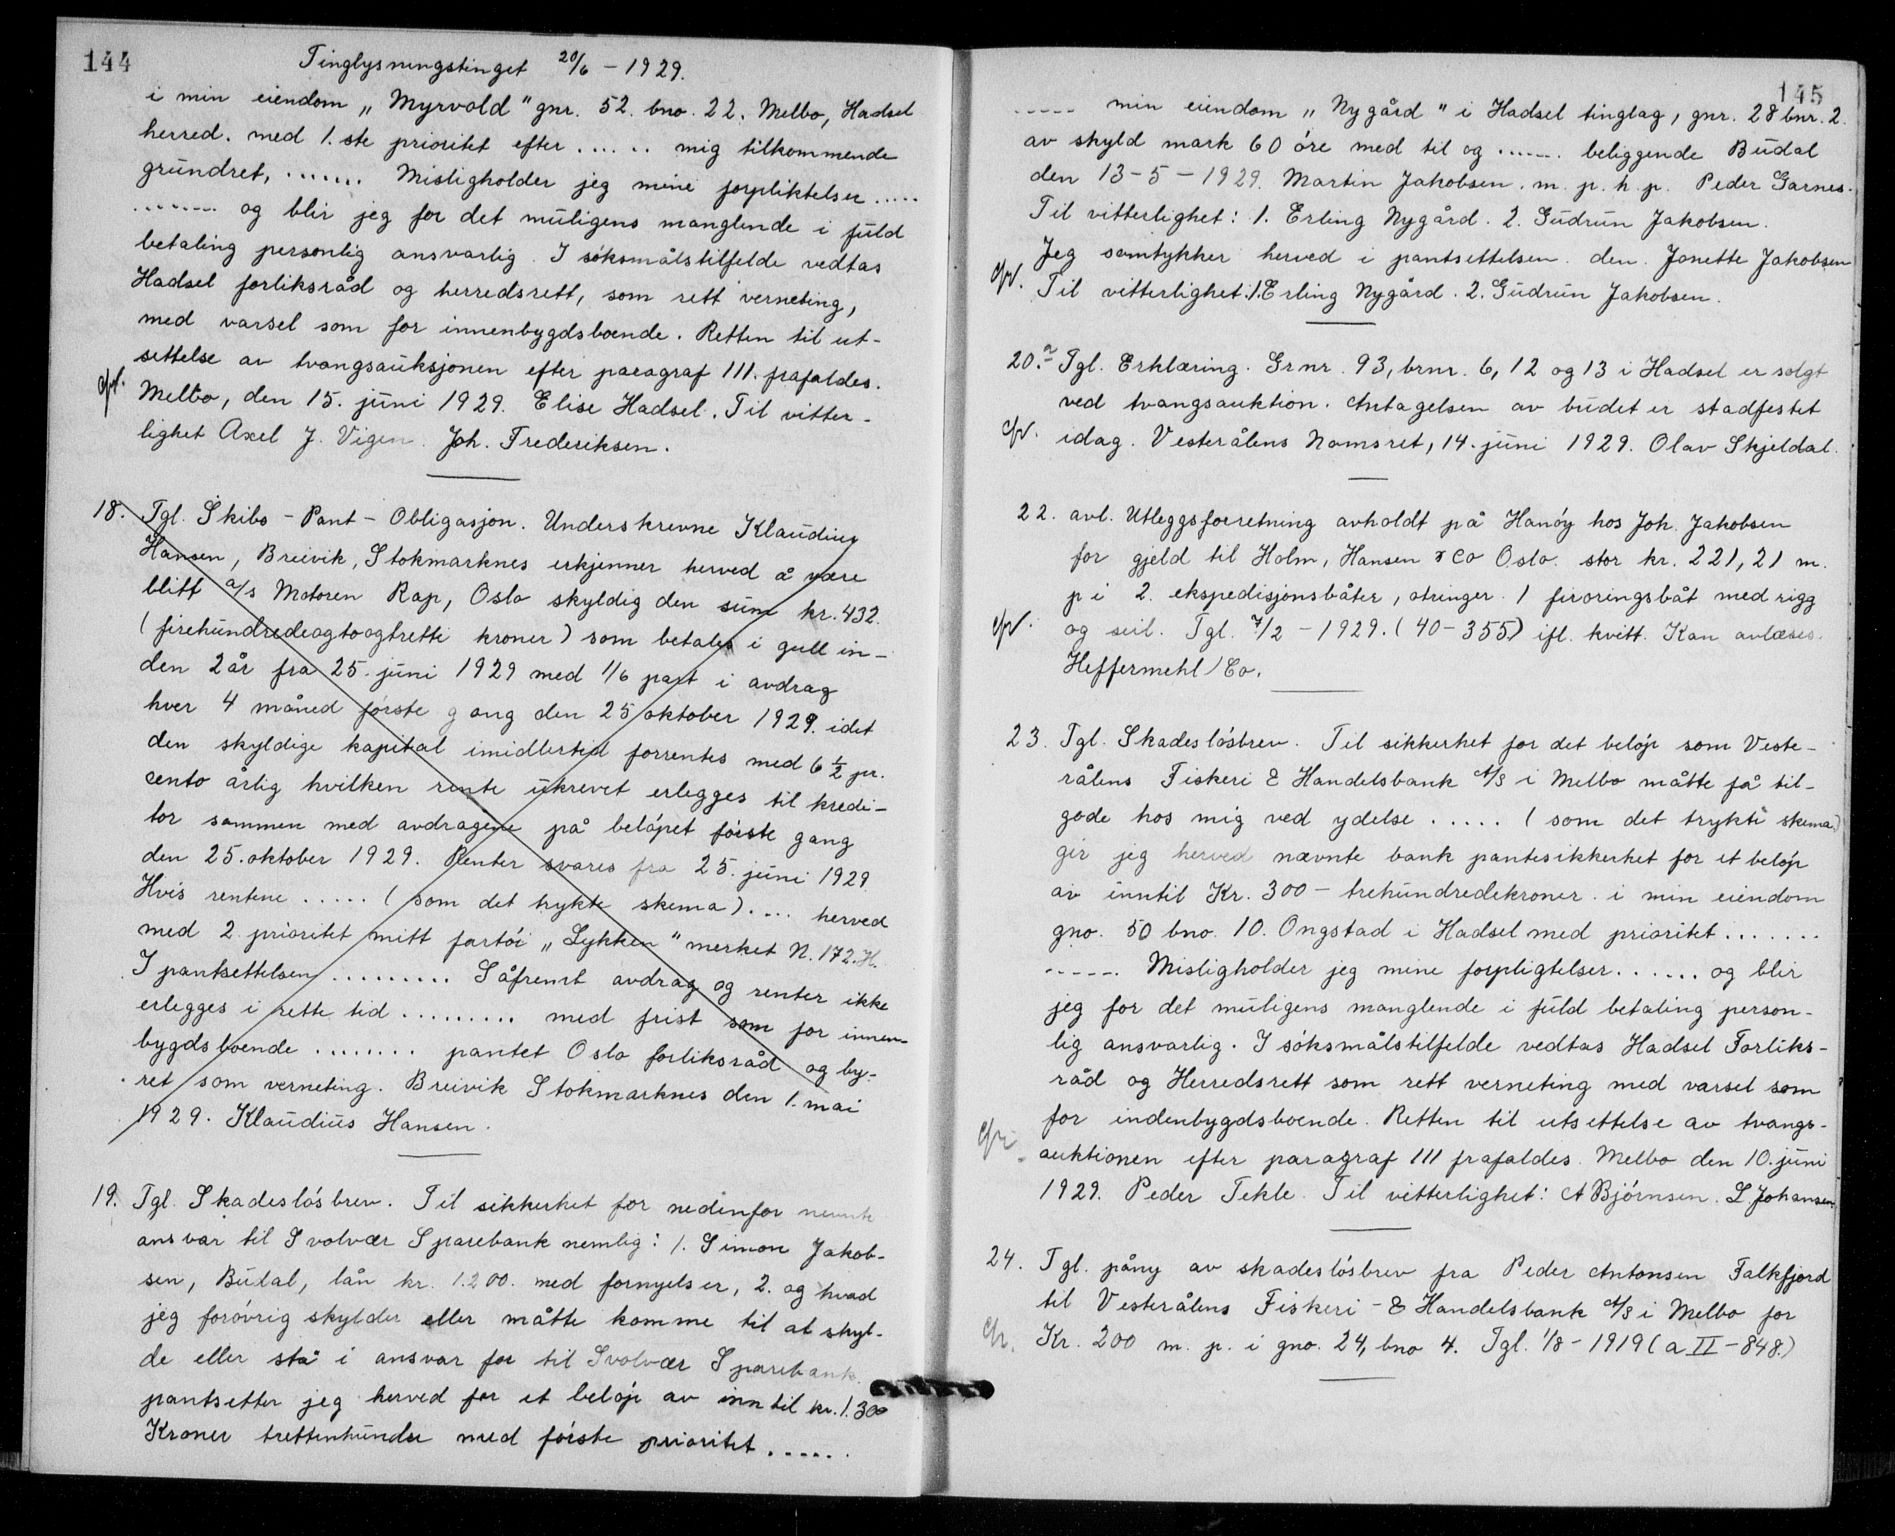 144
Tinglysningstinget 20/6 - 1929.
i min eiendom „Myrvold" gnr. 52. bno. 22. Melbo, Hadsel
herred. med 1.ste prioritet efter ...... mig tilkommende
grundret, ....... Misligholder jeg mine forpliktelser .....
........ og blir jeg for det muligens manglende i fuld
betaling personlig ansvarlig. I söksmålstilfelde vedtas
Hadsel forliksråd og herredsrett, som rett verneting,
med varsel som for innenbygdsboende. Retten til ut-
settelse av tvangsauksjonen efter paragraf 111. frafaldes.
Melbo, den 15. juni 1929. Elise Hadsel. Til vitter-
lighet Axel J. Vigen. Joh. Frederiksen.
18. Tgl. Skibs - Pant - Obligasjon. Underskrevne Klaudius
Hansen, Breivik, Stokmarknes erkjenner herved å være
blitt a/s Motoren Rap, Oslo skyldig den sum kr. 432.
(firehundredeogtoogtretti kroner) som betales i gull in-
den 2 år fra 25. juni 1929 med 1/6 part i avdrag
hver 4 måned förste gang den 25 oktober 1929. idet
den skyldige kapital imidlertid forrentes med 6 1/2 pr.
cento årlig hvilken rente ukrevet erlegges til kredi-
tor sammen med avdragene på belöpet förste gang
den 25. oktober 1929. Renter svares fra 25. juni 1929
Hvis rentene ..... (som det trykte skema) .... herved
med 2. prioritet mitt fartöi „Lykken" merket N. 172. H.
I pantsettelsen .......... Såfremt avdrag og renter ikke
erlegges i rette tid ......... med frist som for innen-
bygdsboende ........ pantet Oslo forliksråd og by-
ret som verneting. Breivik Stokmarknes den 1. mai
1929. Klaudius Hansen.
19. Tgl. Skadeslösbrev. Til sikkerhet for nedenfor nevnte
ansvar til Svolvær Sparebank nemlig: 1. Simon Jakob-
sen, Budal, lån kr. 1.200. med fornyelser, 2. og hvad
jeg foróvrig skylder eller måtte komme til at skyl-
de eller stå i ansvar for til Svolvær Sparebank.
pantsetter jeg herved for et belöp av inntil kr. 1.300
Kroner trettenhundre med förste prioritet .....
145
..... min eiendom „Nygård" i Hadsel tinglag, gnr. 28 bnr. 2.
av skyld mark 60 öre med til og ...... beliggende Budal
den 13-5-1929. Martin Jakobsen. m. p. h. p. Peder Garnes.
Til vitterlighet: 1. Erling Nygård. 2. Gudrun Jakobsen.
Jeg samtykker herved i pantsettelsen. den. Janette Jakobsen
Til vitterlighet: 1. Erling Nygård. 2. Gudrun Jakobsen.
20.a Tgl. Erklæring. Grnr. 93, brnr. 6, 12 og 13 i Hadsel er solgt
ved tvangsauktion. Antagelsen av budet er stadfestet
idag. Vesterålens Namsret, 14. juni 1929. Olav Skjeldal.
22. avl. Utleggsforretning avholdt på Hanöy hos Joh. Jakobsen
for gjeld til Holm, Hansen & Co Oslo. stor kr. 221,21 m.
p i 2. ekspedisjonsbåter, otringer. 1 firoringsbåt med rigg
og seil. Tgl. 7/2 - 1929. (40-355) ifl. kvitt. Kan avlæses.
Heffermehl / Co.
23. Tgl. Skadeslösbrev. Til sikkerhet for det belöp som Veste-
rålens Fiskeri & Handelsbank A/S i Melbo måtte få til-
gode hos mig ved ydelse ..... (som det trykte skema)
gir jeg herved nævnte bank pantesikkerhet for et belöp
av inntil Kr. 300 - trehundredekroner. i min eiendom
gno. 50 bno. 10. Ongstad i Hadsel med prioritet .......
...... Misligholder jeg mine forpligtelser ...... og blir
jeg for det muligens manglende i fuld betaling person-
lig ansvarlig. I söksmålstilfelde vedtas Hadsel Forliks-
råd og Herredsrett som rett verneting med varsel som
for indenbygdsboende. Retten til utsettelse av tvangs-
auktionen efter paragraf 111 frafaldes. Melbo den 10. juni
1929. Peder Tekle. Til vitterlighet: A Bjórnsen. L Johansen
24. Tgl. påny av skadeslösbrev fra Peder Antonsen Falkfjord
til Vesterålens Fiskeri- & Handelsbank A/S i Melbo for
Kr. 200 m. p. i gno. 24, bno 4. Tgl. 1/8 - 1919 (a II - 848.)